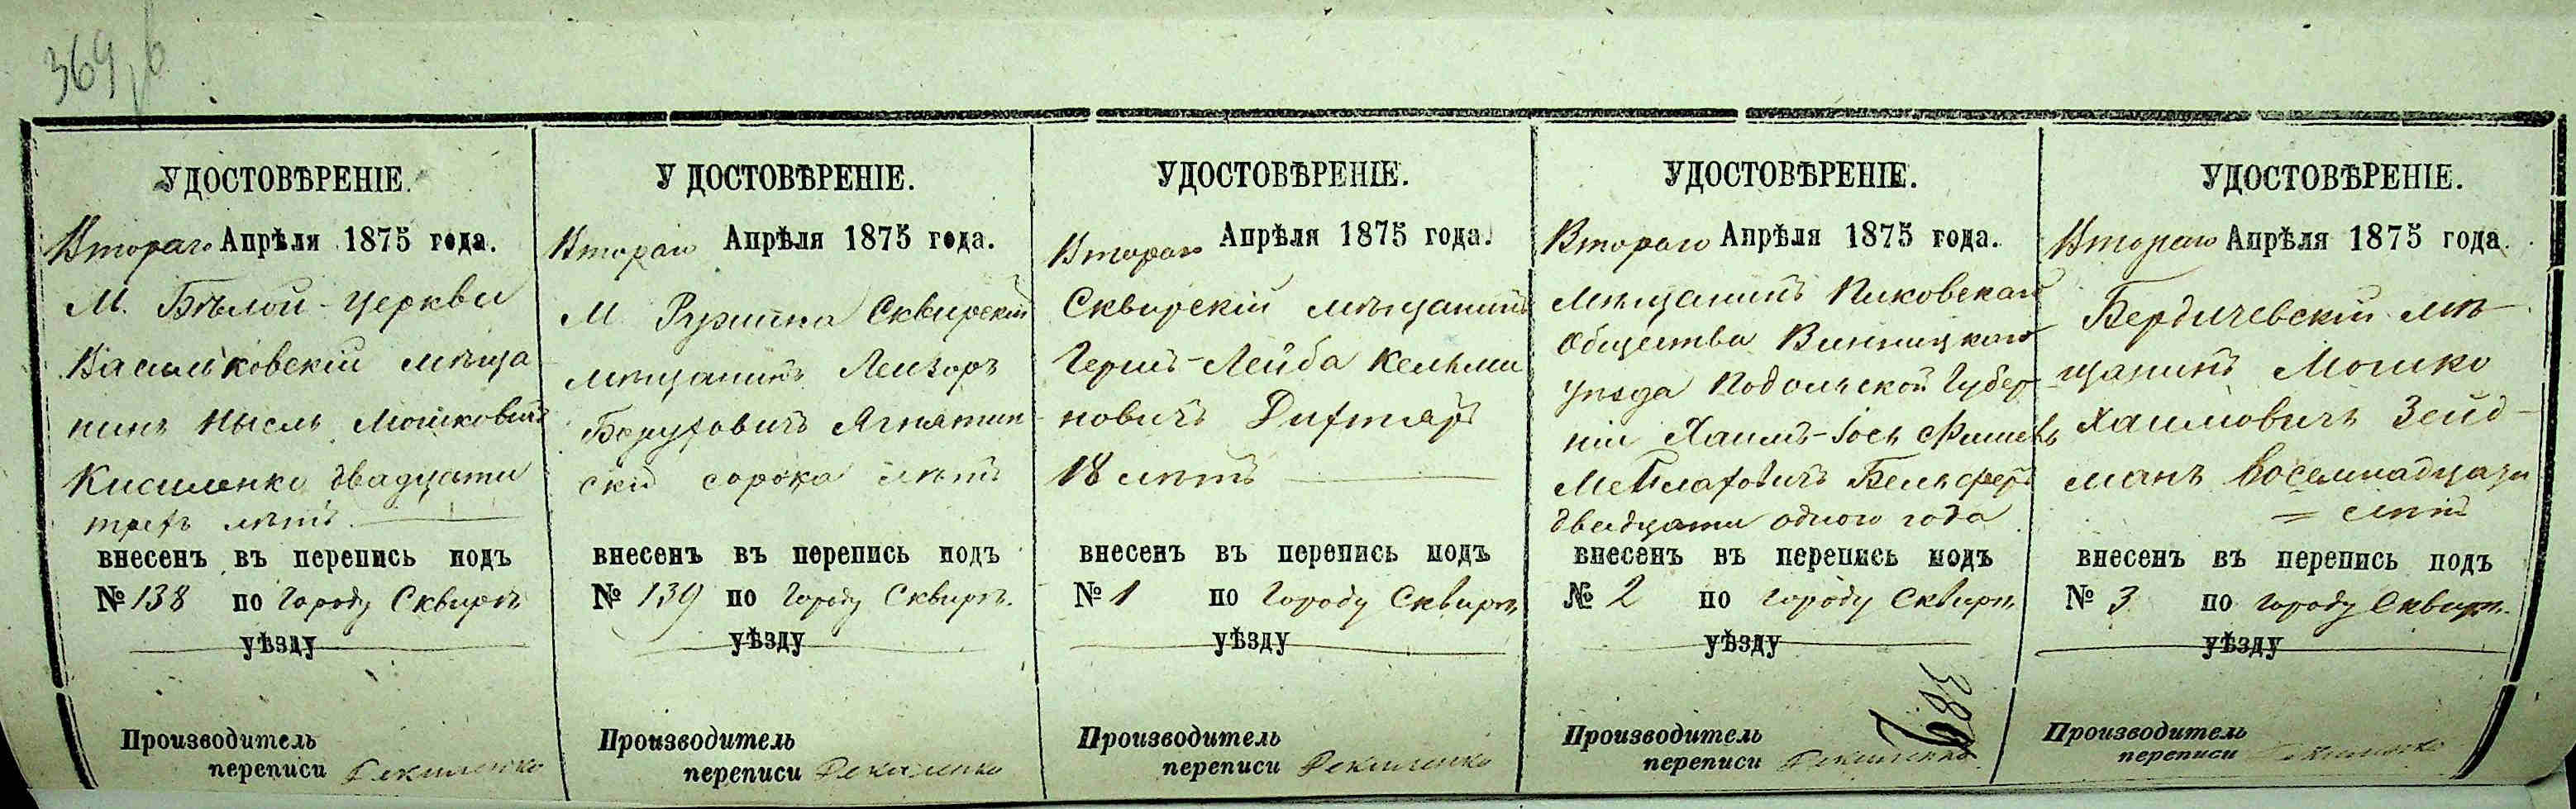 369, б
УДОСТОВѢРЕНІЕ.
Втораго Апрѣля 1875 года.
М. Бѣлой-Церкви
Васильковскій мѣща
нинъ Нысль Мошковичъ
Кисиленко двадцати
трехъ лѣтъ.
внесенъ въ перепись подъ
№ 138 по городу Сквирѣ
уѣзду
Производитель
переписи
УДОСТОВѢРЕНІЕ.
Втораго Апрѣля 1875 года.
М. Ружина Сквирскій
мѣщанинъ Лейзоръ
Борухович Ягнятин
скій сорока лѣтъ
внесенъ въ перепись подъ
№ 139 по городу Сквирѣ.
уѣзду
Производитель
переписи
УДОСТОВѢРЕНІЕ.
Втораго Апрѣля 1875 года.
Сквирскій мѣщанинъ
Гершъ-Лейба Кельма
новичъ Дихтяръ
18 лѣтъ
внесенъ въ перепись подъ
№ 1 по городу Сквирѣ
уѣзду
Производитель
переписи
УДОСТОВѢРЕНІЕ.
Втораго Апрѣля 1875 года.
мѣщанинъ Пиковскаго
общества Винницкаго
уѣзда Подольской Губер
ніи Хаимъ-Іось
Бельферъ
двадцати одного года
внесенъ въ перепись подъ
№ 2 по городу Сквирѣ
уѣзду
Производитель
переписи
УДОСТОВѢРЕНІЕ.
Втораго Апрѣля 1875 года.
Бердичевскій мѣ-
щанинъ Мошко
Хаимовичъ Зейд-
манъ восемнадцати
= лѣтъ
внесенъ въ перепись подъ
№ 3 по городу Сквирѣ.
уѣзду
Производитель
переписи